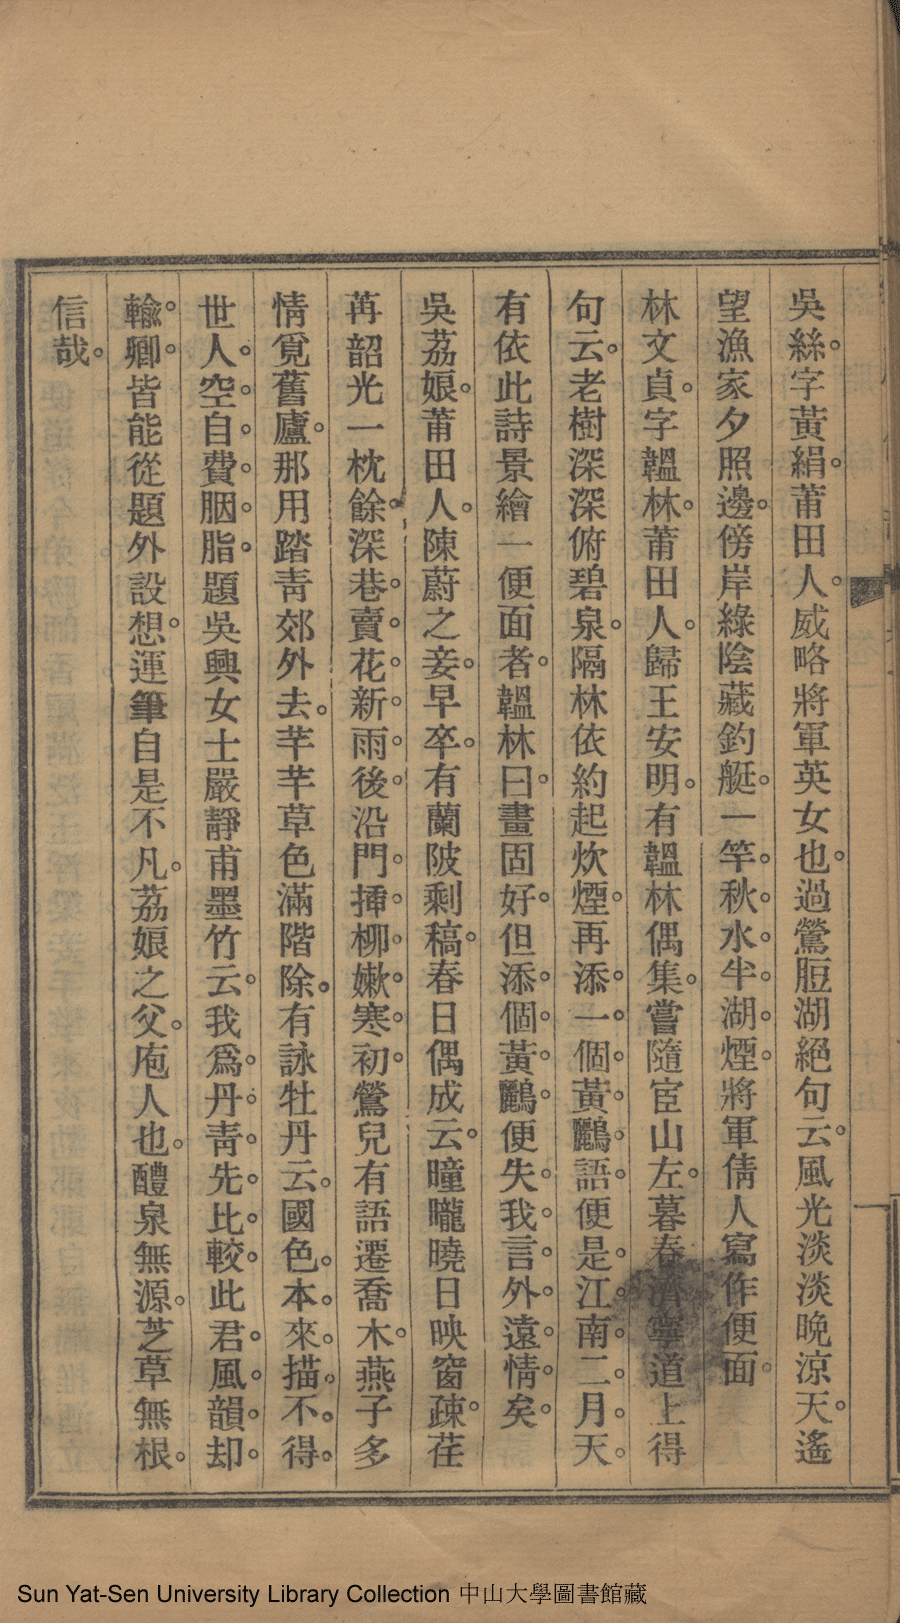 吳絲字黃絹莆田人威略將軍英女也過鶯脰湖絕句云風光淡淡晚涼天遙
望漁家夕照邊傍岸綠陰藏釣艇一竿秋水半湖煙將軍倩人寫作便面
林文貞字韞林莆田人歸王安明有韞林偶集嘗隨宦山左暮春濟寧道上得
句云老樹深深俯碧泉隔林依約起炊煙再添一個黃鸝語便是江南二月天
有依此詩景繪一便面者韞林曰畫固好但添個黃鸝便失我言外遠情矣
吳荔娘莆田人陳蔚之妾早卒有蘭陂剩稿春日偶成云曈曨曉日映窗疎荏
苒韶光一枕餘深巷賣花新雨後沿門揷柳嫩寒初鶯兒有語遷喬木燕子多
情覓舊廬那用踏靑郊外去芊芊草色滿階除有詠牡丹云國色本來描不得
世人空自費胭脂題吳興女士嚴靜甫墨竹云我爲丹靑先比較此君風韻却
輸卿皆能從題外設想運筆自是不凡荔娘之父庖人也醴泉無源芝草無根
信哉
Sun Yat-Sen University Library Collection 中山大學圖書館藏